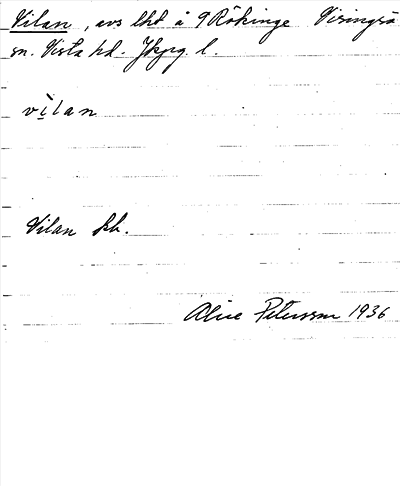 Vilan, avs lht å 9 Rökinge Visingsö
sn. Vista hd. Jkpg. l.
vìlan
Vilan kk.
Alice Petersson 1936